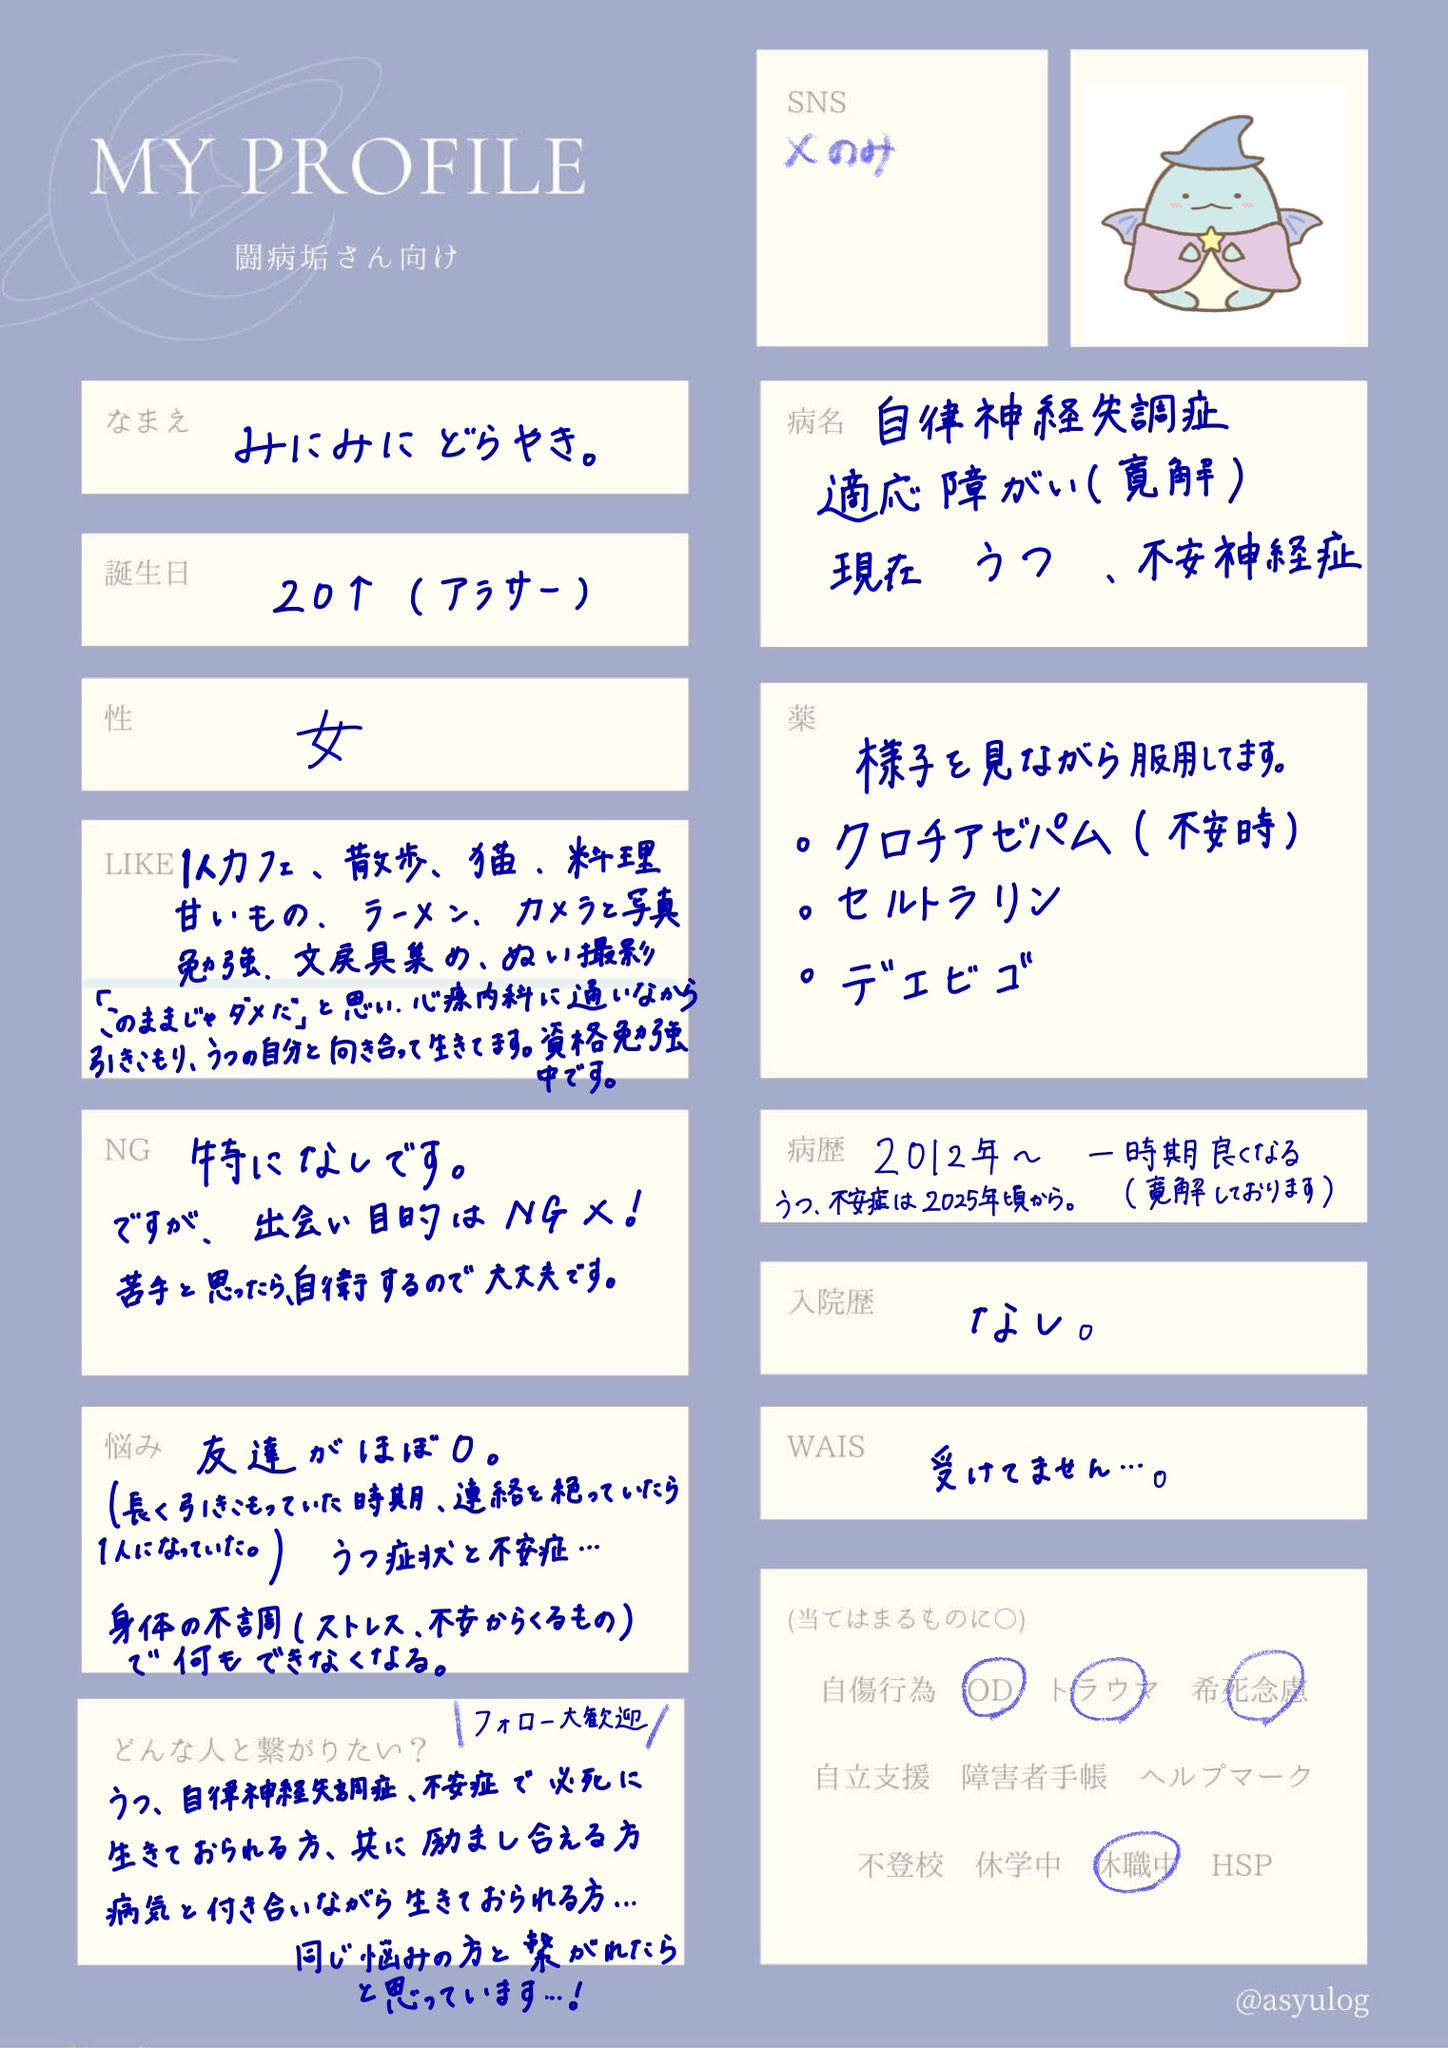 MY PROFILE
闘病垢さん向け
SNS
Xのみ
なまえ
みにみに どらやき。
誕生日
20↑ (アラサー)
性
女
LIKE 1人カフェ、散歩、猫、料理
甘いもの、ラーメン、カメラと写真
勉強、文房具集め、ぬい撮影
「このままじゃダメだ」と思い、心療内科に通いながら
引きこもり、うつの自分と向き合って生きてます。資格勉強
中です。
NG 特になしです。
ですが、出会い目的は NG X!
苦手と思ったら、自衛するので大丈夫です。
悩み 友達がほぼ0。
(長く引きこもっていた時期、連絡を絶っていたら
1人になっていた。) うつ症状と不安症…
身体の不調(ストレス、不安からくるもの)
で何もできなくなる。
\フォロー大歓迎/
どんな人と繋がりたい?
うつ、自律神経失調症、不安症で必死に
生きておられる方、共に励まし合える方
病気と付き合いながら生きておられる方…
同じ悩みの方と繋がれたら
と思っています…!
病名 自律神経失調症
適応障がい(寛解)
現在 うつ、不安神経症
薬
様子を見ながら服用してます。
・クロチアゼパム(不安時)
・セルトラリン
・デエビゴ
病歴 2012年〜 一時期良くなる
うつ、不安症は2025年頃から。 (寛解しております)
入院歴
なし。
WAIS
受けてません…。
(当てはまるものに○)
自傷行為 OD トラウマ 希死念慮
自立支援 障害者手帳 ヘルプマーク
不登校 休学中 休職中 HSP
@asyulog